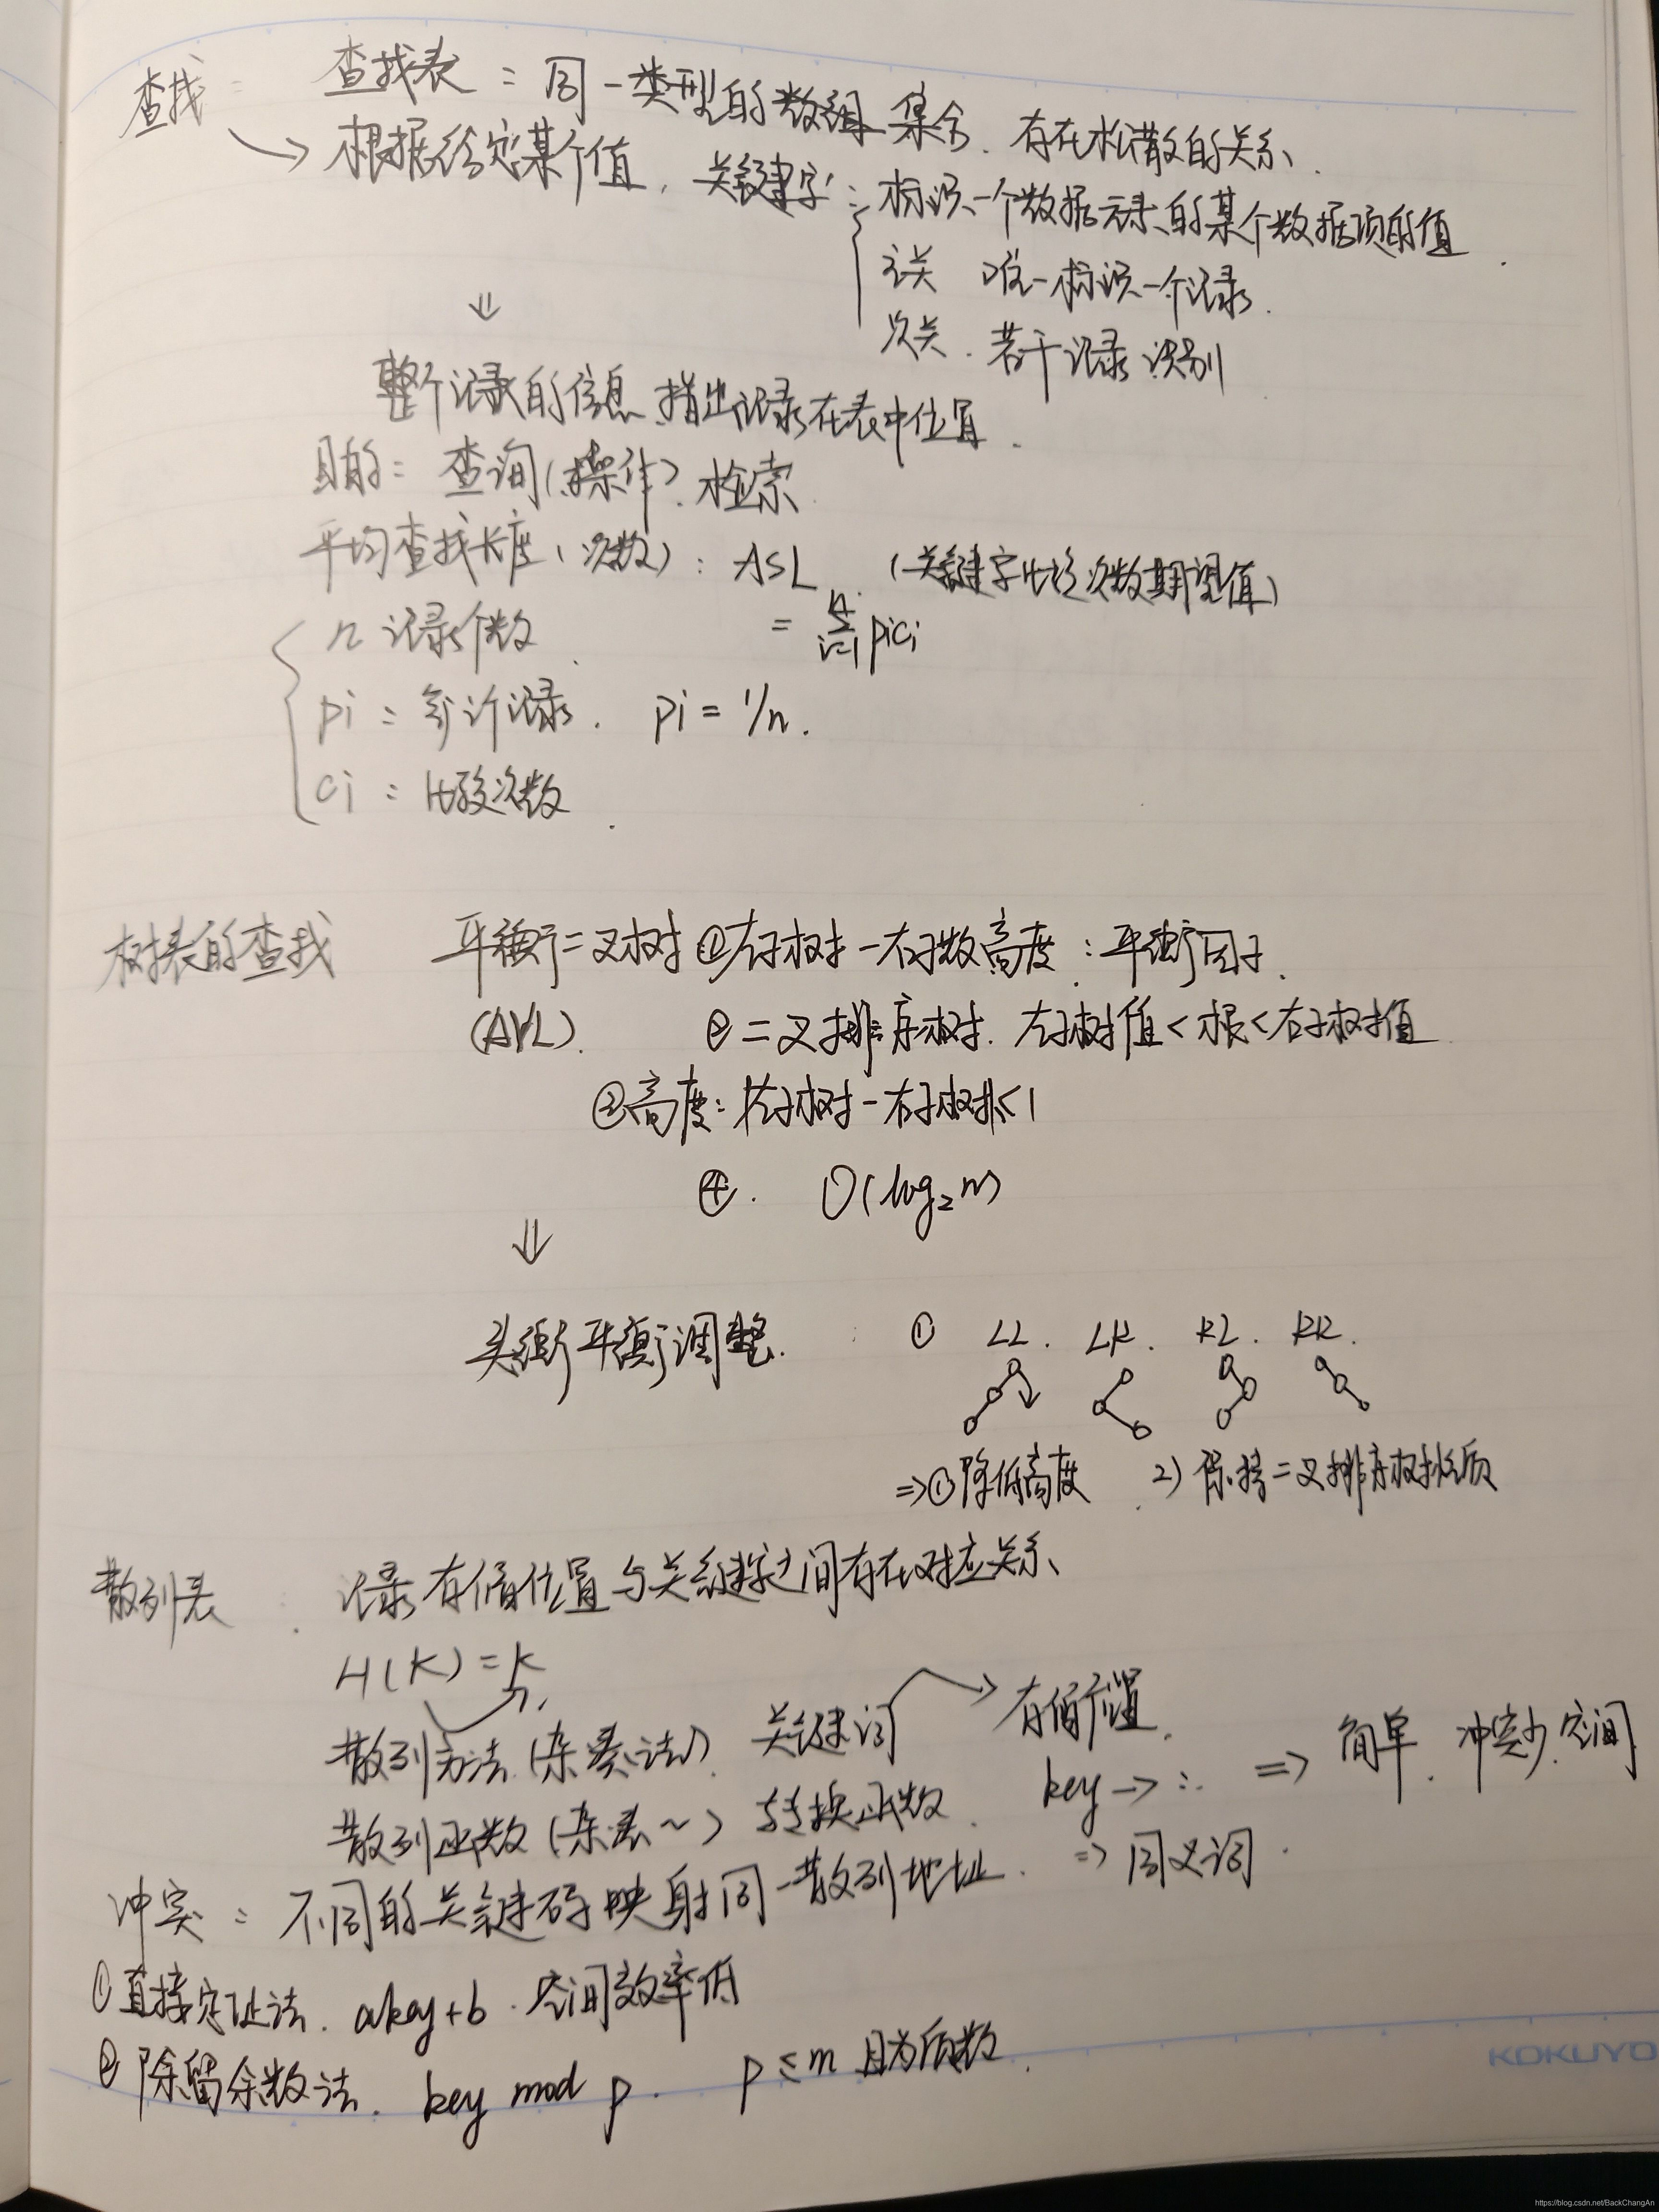 查找: 查找表:同一类型的数组 集合. 存在松散的关系、
根据给定某个值, 关键字:标识一个数据元素的某个数据项的值.
主关 唯一标识一个记录.
⇓
次关. 若干记录识别
整个记录的信息 指出记录在表中位置.
目的: 查询(操作). 检索
平均查找长度(次数): ASL (关键字比较次数期望值)
n 记录个数. = ∑ⁿᵢ₌₁ pici
pi: 第i个记录. pi = 1/n.
ci: 比较次数.
树表的查找 平衡二叉树 ①左子树-右子数高度:平衡因子.
(AVL). ②二叉排序树. 左子树值<根<右子树值
②高度:|左子树-右子树|≤1
④. O(log₂n)
⇓
平衡调整. : ① LL. LR. RL. RR.
⇒①降低高度. 2) 保持二叉排序树性质
散列表. 记录存储位置与关键字之间存在对应关系、
H(K)=k
散列方法(杂凑法). 关键词 → 存储位置.
散列函数(杂凑~) 转换函数. key→∴ ⇒ 简单. 冲突少.空间
冲突: 不同的关键码映射同一散列地址. ⇒ 同义词.
①直接定址法. akey+b. 空间效率低
②除留余数法. key mod p. p≤m 且为质数.
KOKUYO
https://blog.csdn.net/BackChangAn